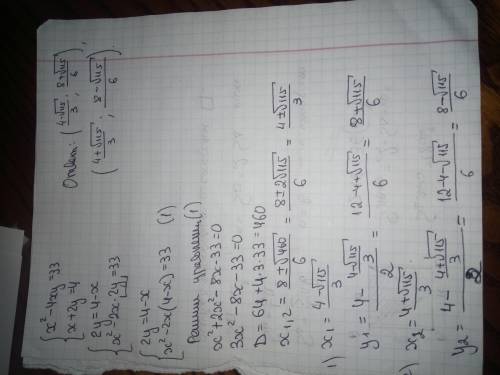 {x² - 4xy = 33
{x + 2y = 4
{2y = 4 - x
{x² - 2x · 2y = 33
{2y = 4 - x
{x² - 2x(4 - x) = 33 (1)
Решим уравнение (1)
x² + 2x² - 8x - 33 = 0
3x² - 8x - 33 = 0
D = 64 + 4 · 3 · 33 = 460
x₁,₂ = (8 ± √460)/6 = (8 ± 2√115)/6 = (4 ± √115)/3
1) x₁ = (4 - √115)/3
y₁ = (4 - (4 - √115)/3)/2 = (12 - 4 + √115)/6 = (8 + √115)/6
2) x₂ = (4 + √115)/3
y₂ = (4 - (4 + √115)/3)/2 = (12 - 4 - √115)/6 = (8 - √115)/6
Ответ: ((4 - √115)/3 ; (8 + √115)/6),
((4 + √115)/3 ; (8 - √115)/6)